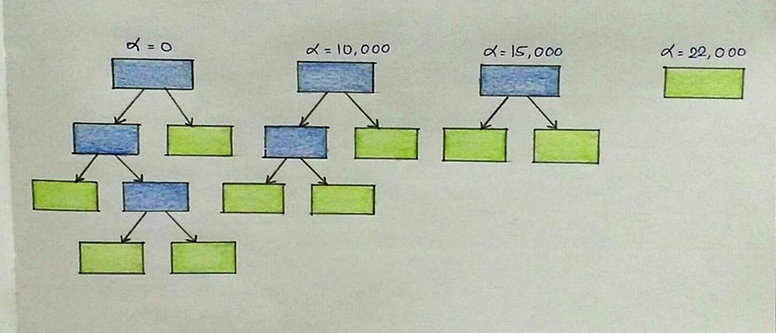 α = 0
α = 10,000
α = 15,000
α = 22,000